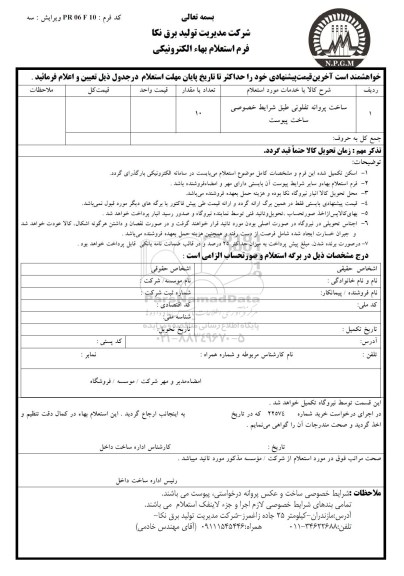 بسمه تعالی
کد فرم : PR 06 F 10 ویرایش : سه
شرکت مدیریت تولید برق نکا
فرم استعلام بهاء الکترونیکی
N.P.G.M
خواهشمند است آخرین قیمت پیشنهادی خود را حداکثر تا تاریخ پایان مهلت استعلام درجدول ذیل تعیین و اعلام فرمائید .
ردیف شرح کالا یا خدمات مورد استعلام تعداد یا مقدار قیمت واحد قیمت کل ملاحظات
۱ ساخت پروانه تفلونی طبق شرایط خصوصی ساخت پیوست ۱۰
جمع کل به حروف:
تذکر مهم : زمان تحویل کالا حتماً قید گردد.
توضیحات:
۱- اسکن تکمیل شده این فرم و مشخصات کامل موضوع استعلام می‌بایست در سامانه الکترونیکی بارگذرای گردد.
۲- فرم استعلام بهاءو سایر شرایط پیوست آن بایستی دارای مهر و امضاءفروشنده باشد .
۳- محل تحویل کالا انبار نیروگاه نکا بوده و هزینه حمل بعهده فروشنده می‌باشد.
۴- قیمت پیشنهادی بایستی فقط در همین برگه ارائه گردد و ارائه قیمت طی پیش فاکتور یا برگه های دیگر مورد قبول نمی‌باشد.
۵- بهای کالاپس ازاخذ صورتحساب ،تحویل وتائید فنی توسط نماینده نیروگاه و صدور رسید انبار پرداخت خواهد شد .
۶- اجناس تحویلی در نیروگاه در صورت اصلی بودن مورد تائید قرار خواهند گرفت و در صورت نقصان و داشتن هرگونه اشکال، کالا عودت خواهد شد
و جبران خسارت ایجاد شده شامل فرصت از دست رفته و همچنین هزینه حمل بعهده فروشنده می‌باشد.
۷- درصورت برنده شدن، مبلغ پیش پرداخت به میزان حداکثر ۲۵ درصد و در قالب ضمانت نامه بانکی قابل پرداخت خواهد بود .
درج مشخصات ذیل در برگه استعلام و صورتحساب الزامی است :
اشخاص حقیقی اشخاص حقوقی
نام و نام خانوادگی: نام موسسه/ شرکت :
نام فروشنده / پیمانکار: شماره ثبت شرکت :
کد ملی: کد اقتصادی :
شناسه ملی:
تاریخ تکمیل : تاریخ تحویل:
آدرس: کد پستی :
تلفن : نام کارشناس مربوطه و شماره همراه : نمابر :
ParsNamadData
۰۲۱-۸۸۳۴۹۶۷۰-۵
امضاءمدیر و مهر شرکت / موسسه / فروشگاه
این قسمت توسط نیروگاه تکمیل خواهد شد .
در اجرای درخواست خرید شماره ۲۲۵۷۴ که در تاریخ به اینجانب ارجاع گردید . این استعلام بهاء در کمال دقت تنظیم و
اخذ گردید و صحت مندرجات آن را گواهی می‌نمایم .
تاریخ : کارشناس اداره ساخت داخل
صحت مراتب فوق در مورد استعلام از شرکت / مؤسسه مذکور مورد تائید میباشد .
رئیس اداره ساخت داخل
ملاحظات :شرایط خصوصی ساخت و عکس پروانه درخواستی، پیوست می باشند.
تمامی بندهای شرایط خصوصی لازم اجرا و جزء لاینفک استعلام می باشند.
آدرس:مازندران-کیلومتر ۲۵ جاده زاغمرز-شرکت مدیریت تولید برق نکا-
تلفن:۳۴۶۲۲۶۸۸-۰۱۱ همراه:۰۹۱۱۱۵۴۵۴۴۶ (آقای مهندس خادمی)